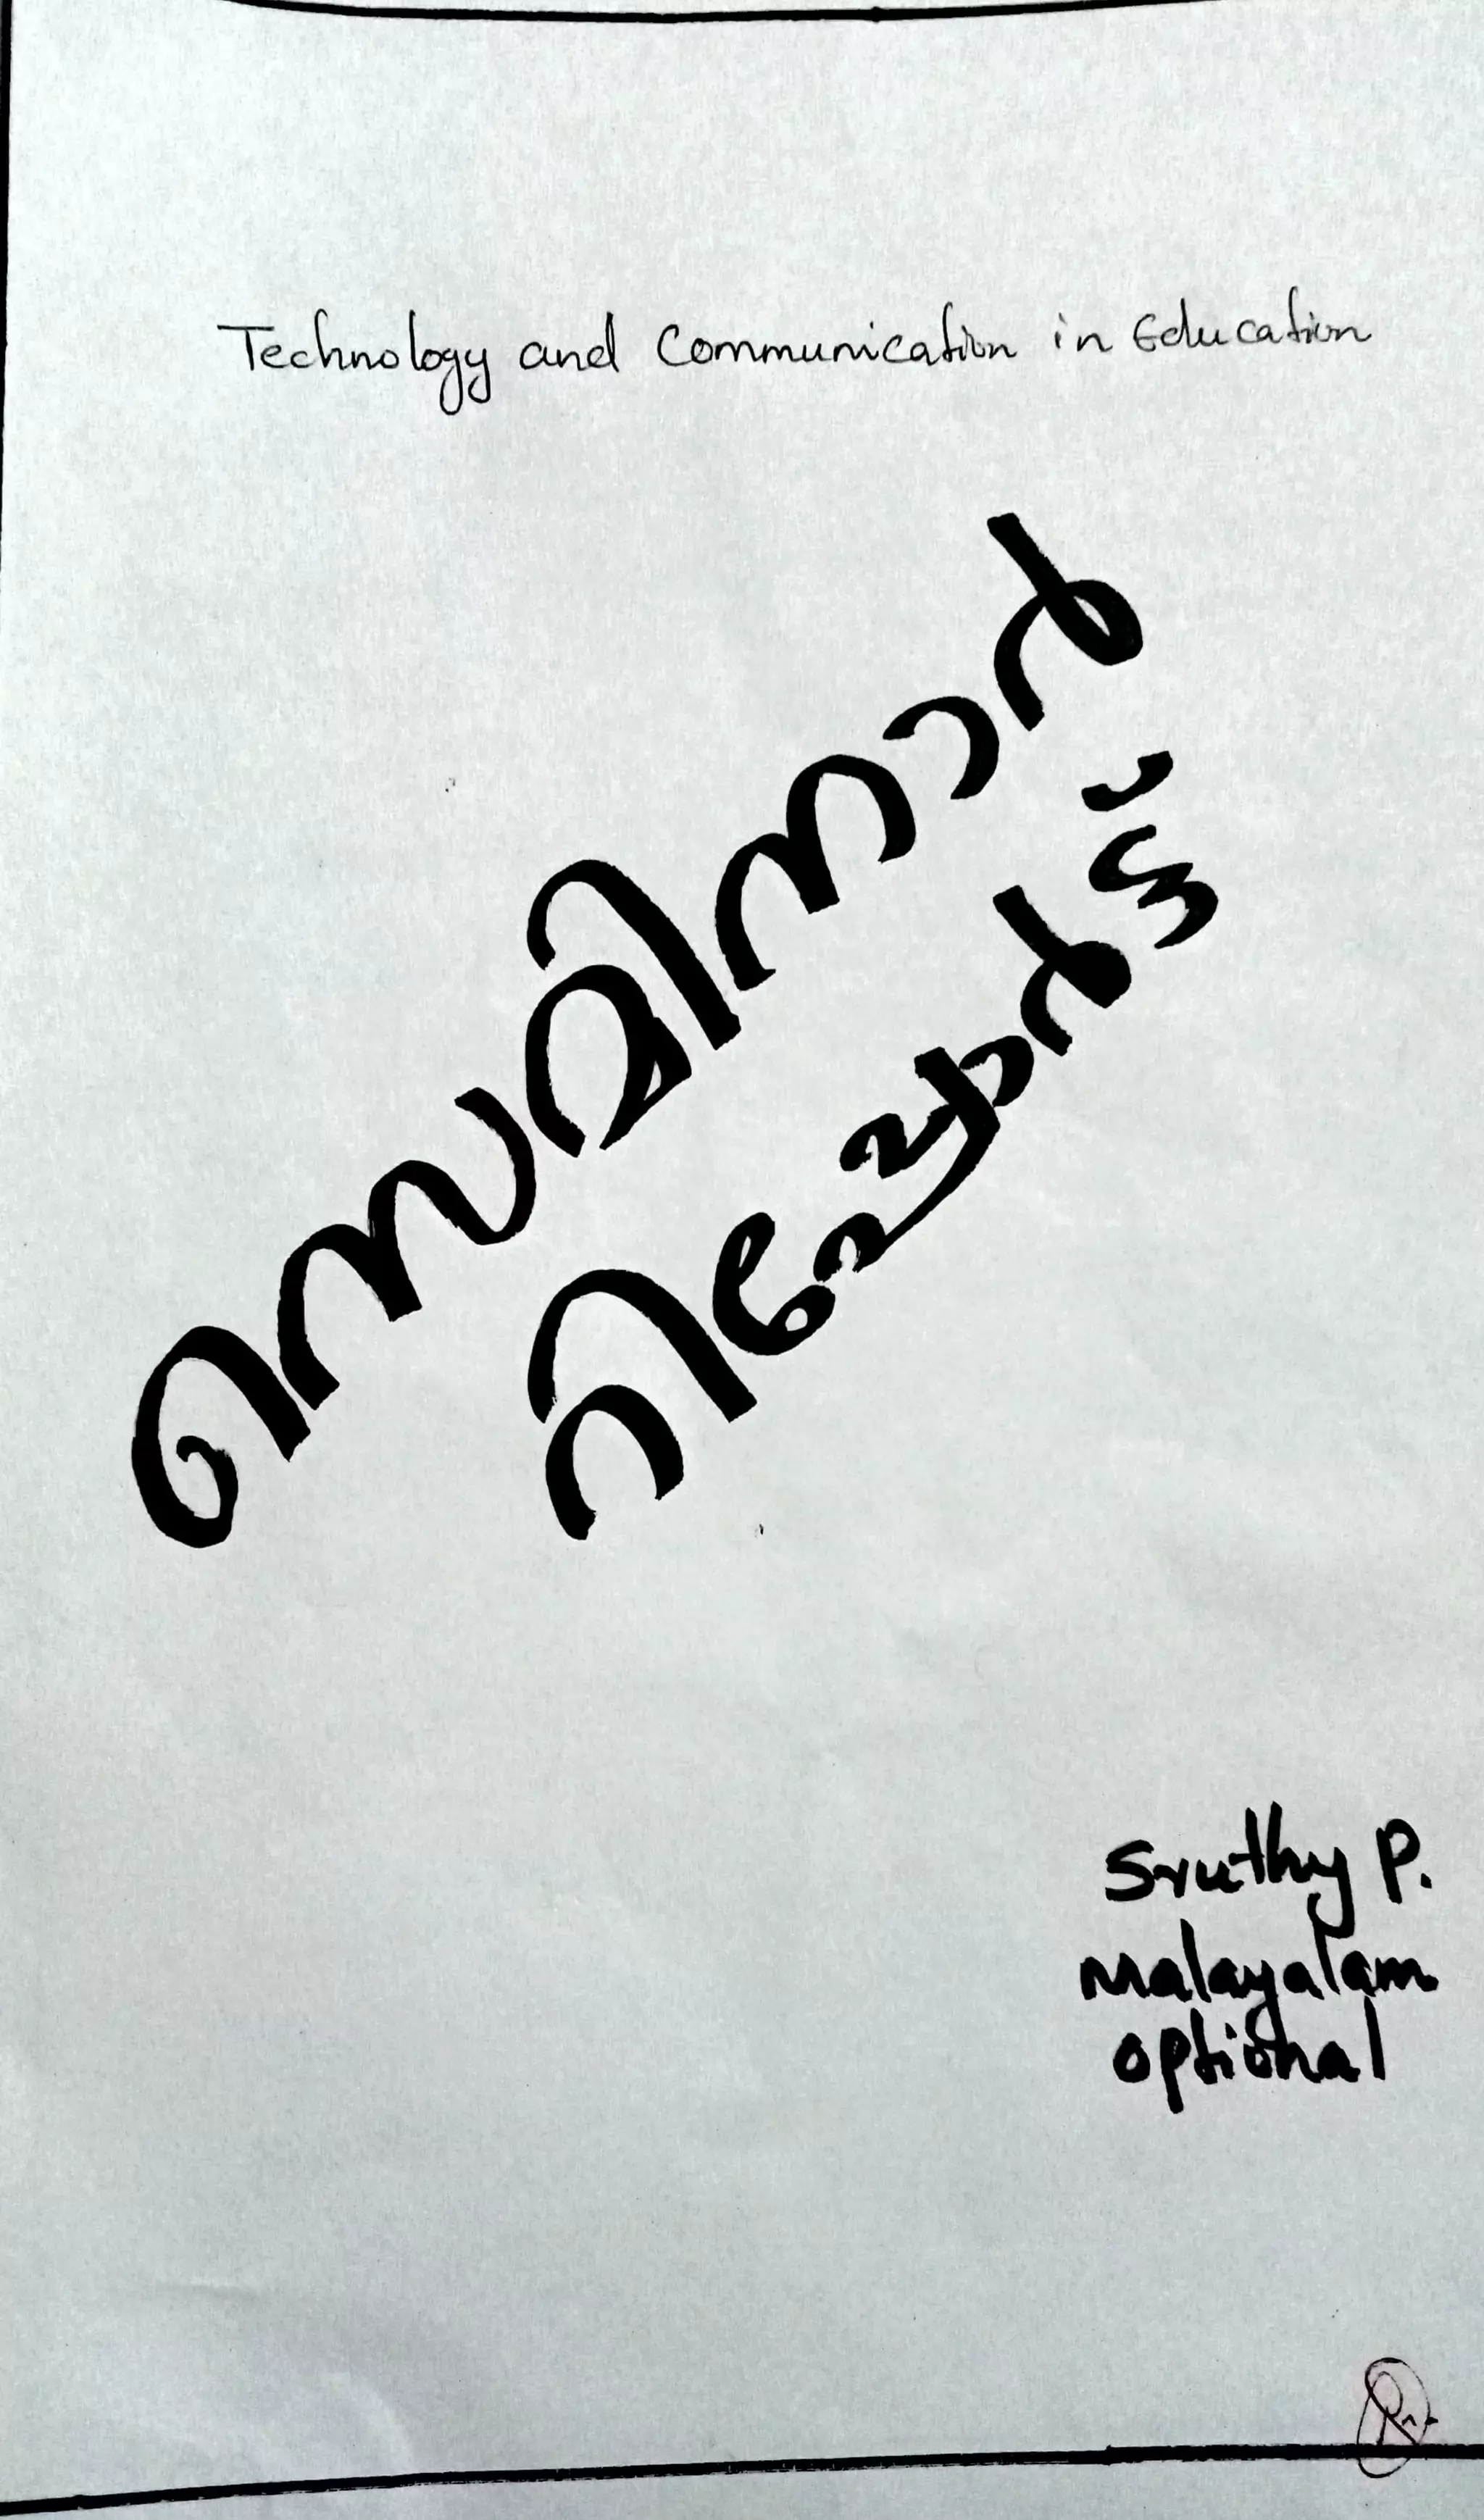 Technology and Communication in Education
സെമിനാർ
റിപ്പോർട്ട്
Sruthy P.
Malayalam
optional